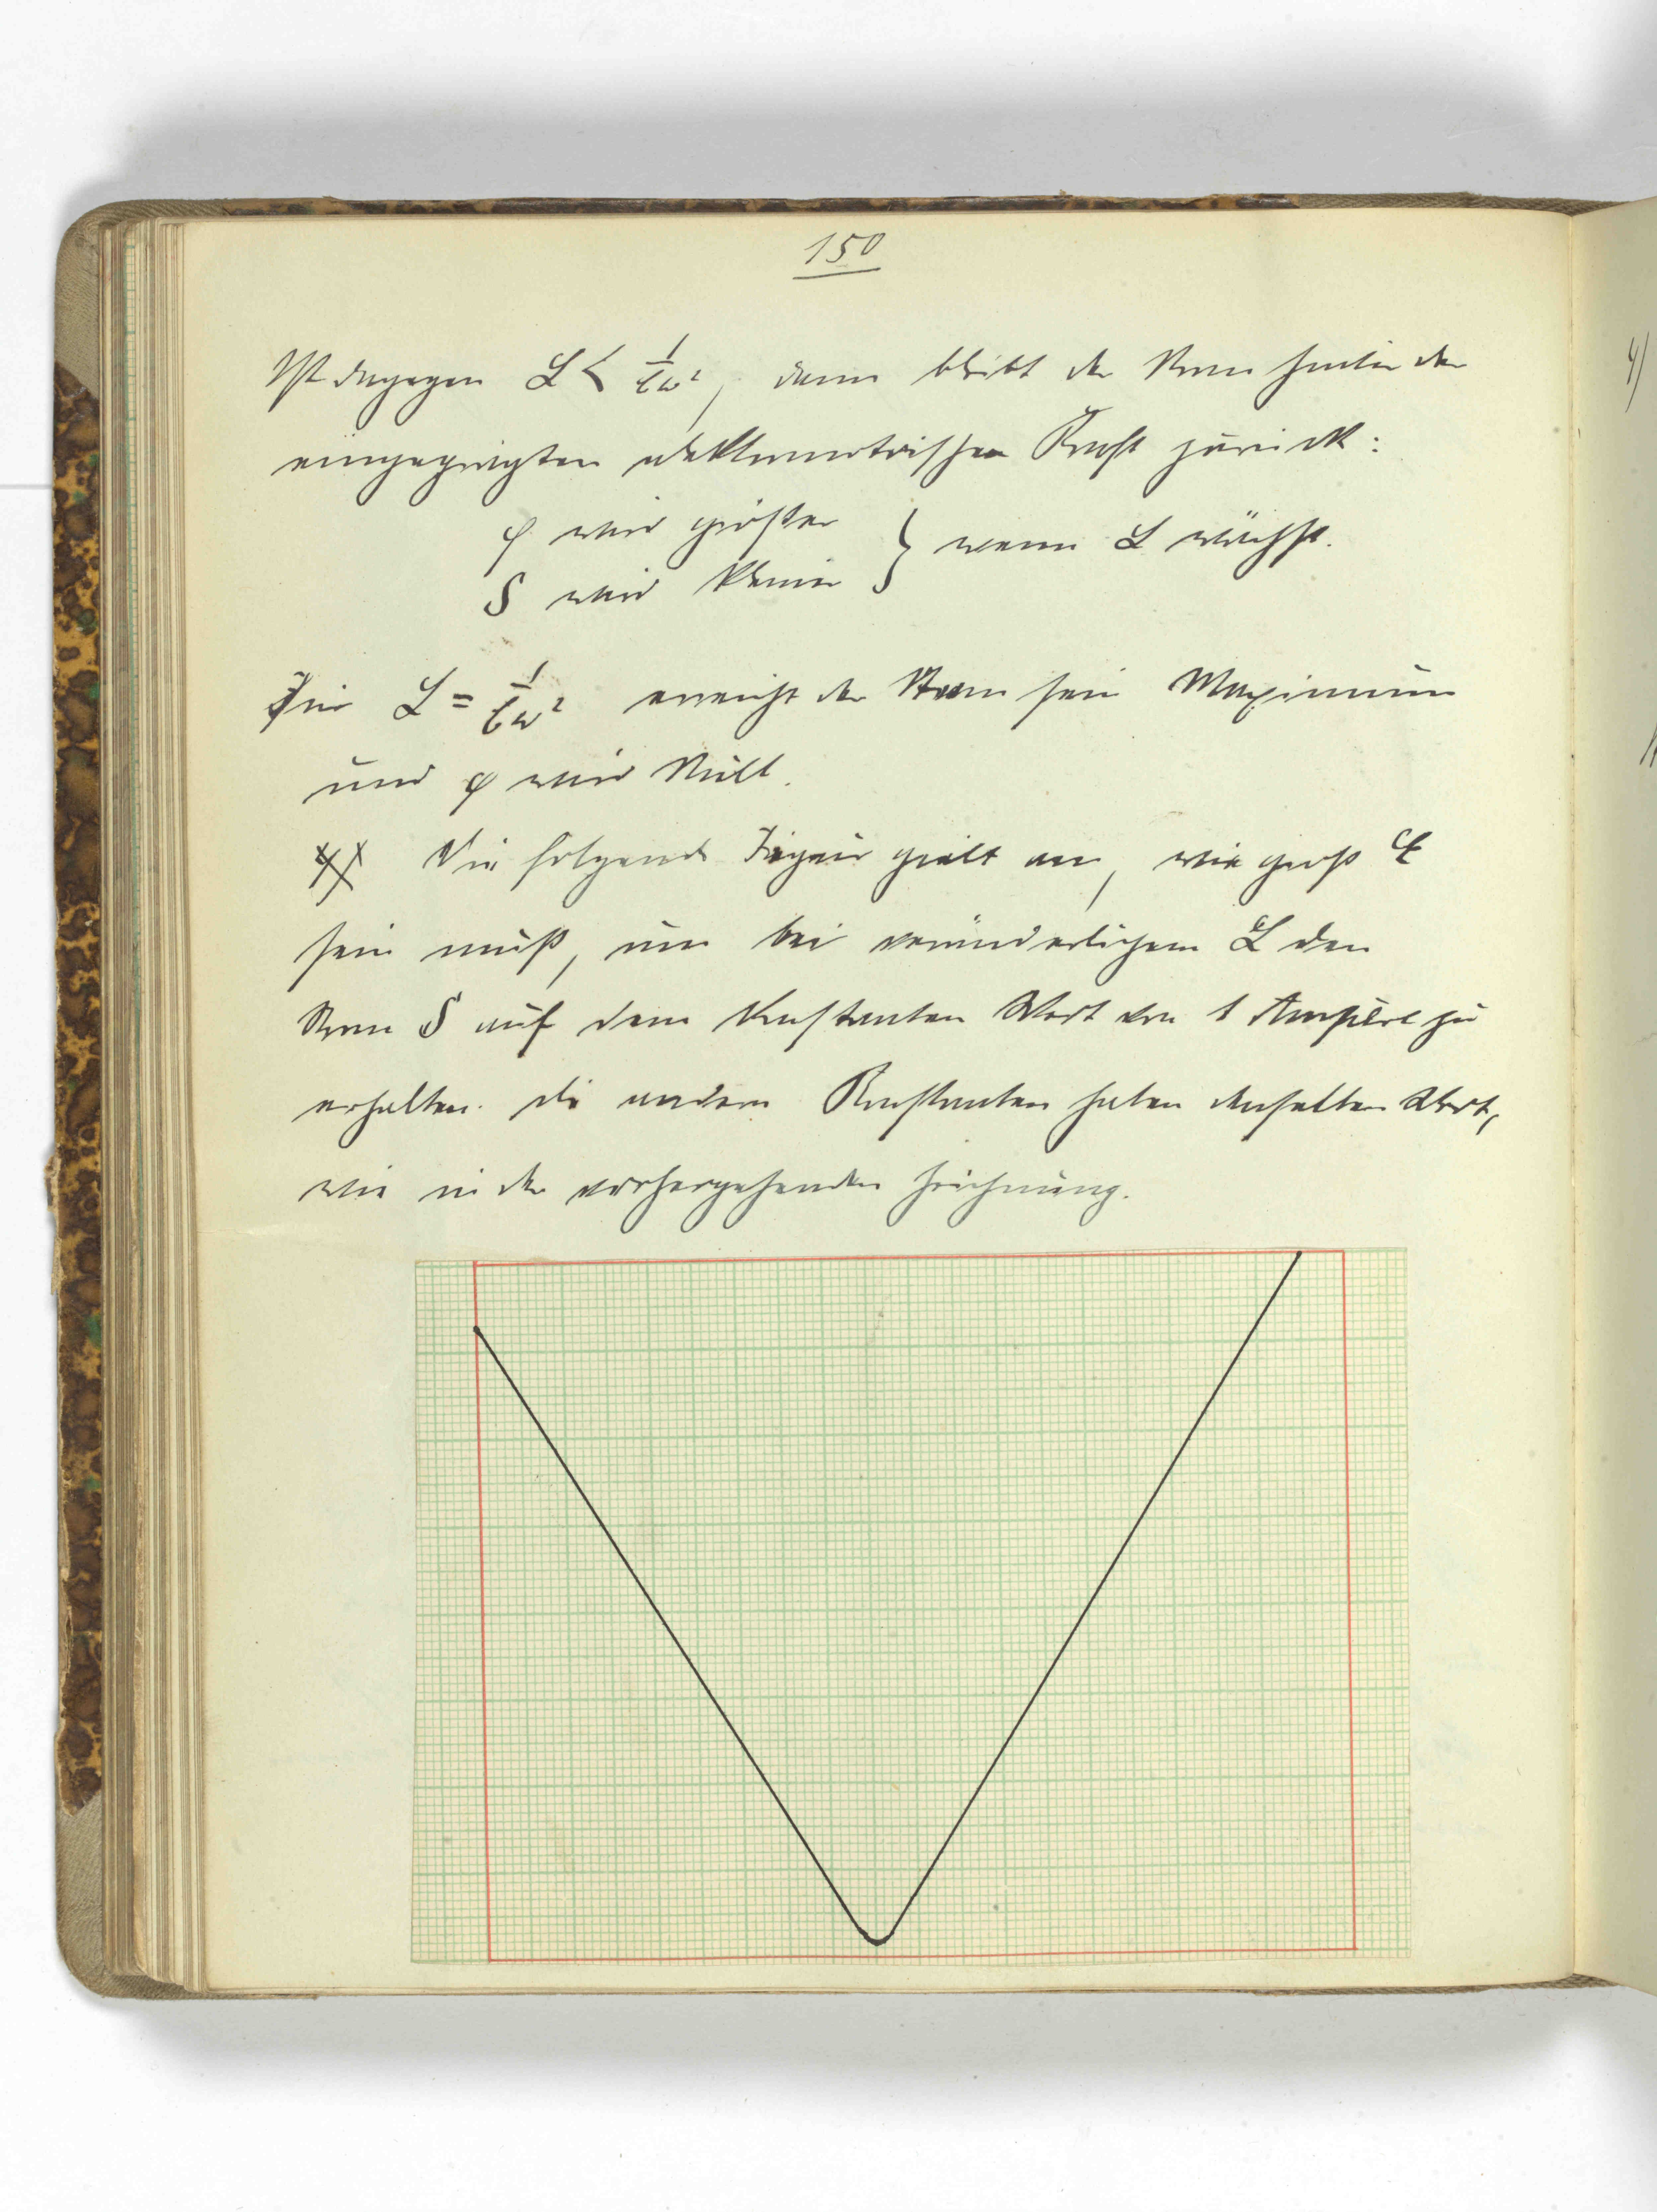 150
Ist dagegen L < 1/Cω², dann bleibt der Strom hinter der
eingeprägten elektromotorischen Kraft zurück:
φ wird größer
J wird kleiner } wenn L wächst.
Für L = 1/Cω² erreicht der Strom sein Maximum
und φ wird Null.
4) Die folgende Figur gibt an, wie groß E
sein muß, um bei veränderlichem L den
Strom J auf dem konstanten Wert von 1 Ampère zu
erhalten. Die andern Konstanten haben denselben Wert,
wie in der vorhergehenden Zeichnung.
4)